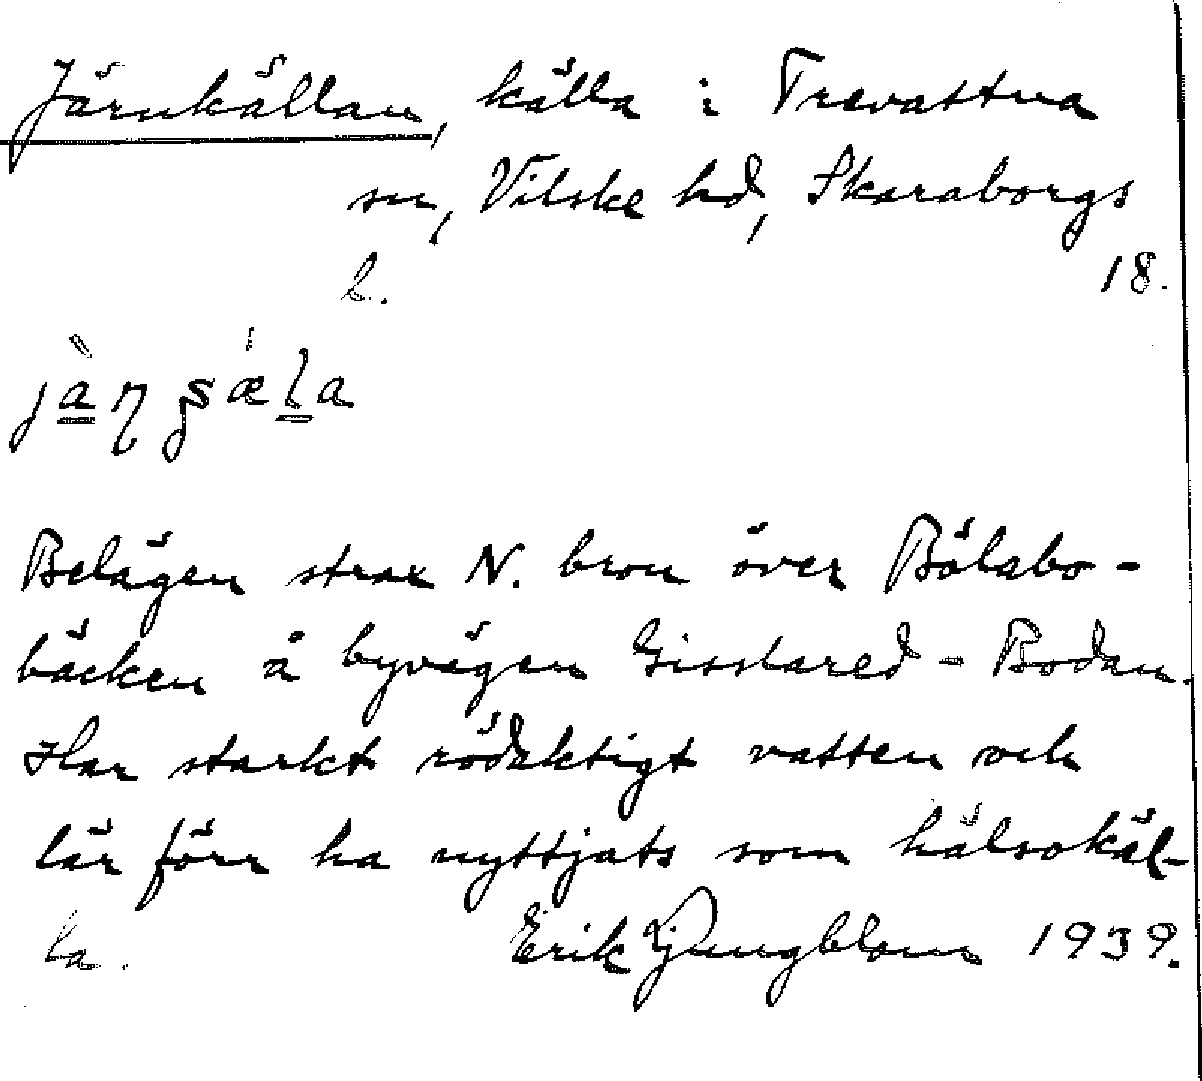 Järnkällan, källa i Trevattna
sn, Vilske hd, Skaraborgs
l. 18.
Belägen strax N. bron över Bölabo-
bäcken å byvägen Gisslared - Bodan.
Har starkt rödaktigt vatten och
lär förr ha nyttjats som hälsokäl-
la. Erik Ljungblom 1939.